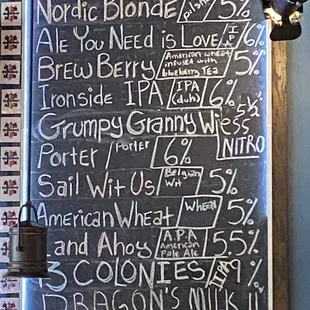 Nordic Blonde / pilsner 5%
Ale You Need is Love / IPA 6%
Brew Berry / American wheat infused with blueberry Tea 5%
Ironside IPA / IPA (duh) 6%
Grumpy Granny Wiess 5½
Porter / Porter / 6% NITRO
Sail Wit Us / Belgian Wit 5%
American Wheat / Wheat 5%
Land Ahoy / A.P.A American Pale Ale 5.5%
13 COLONIES / IIPA %
DRAGON'S MILK 11